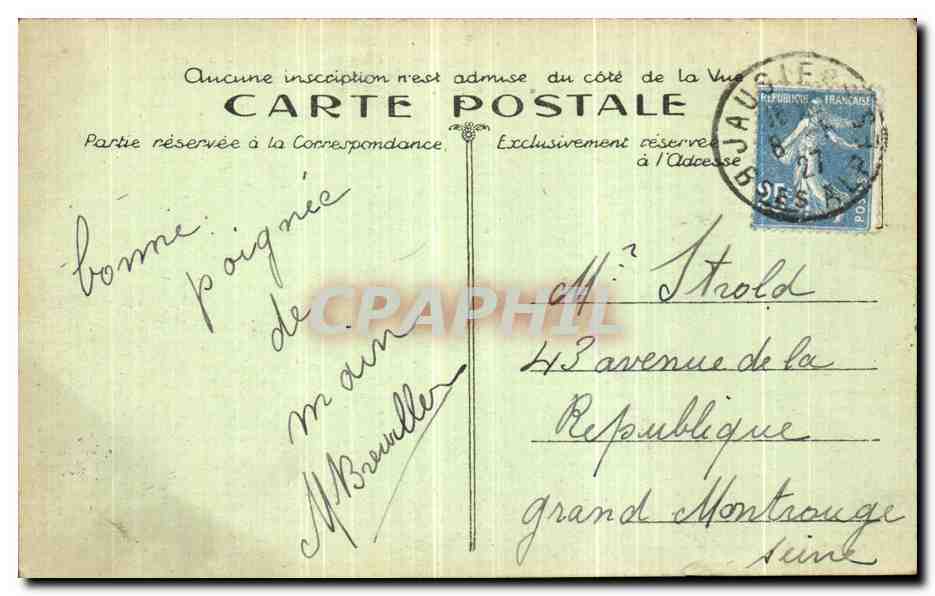 Aucune inscription n'est admise du côté de la Vue
CARTE POSTALE
Partie réservée à la Correspondance
Exclusivement réservée
à l'Adresse
JAUSIERS
Bses ALPES
8
27
REPUBLIQUE FRANÇAISE
25c
POSTES
bonne
poignée
de
main
Mr Strold
43 avenue de la
Republique
grand Montrouge
seine
CPAPHIL